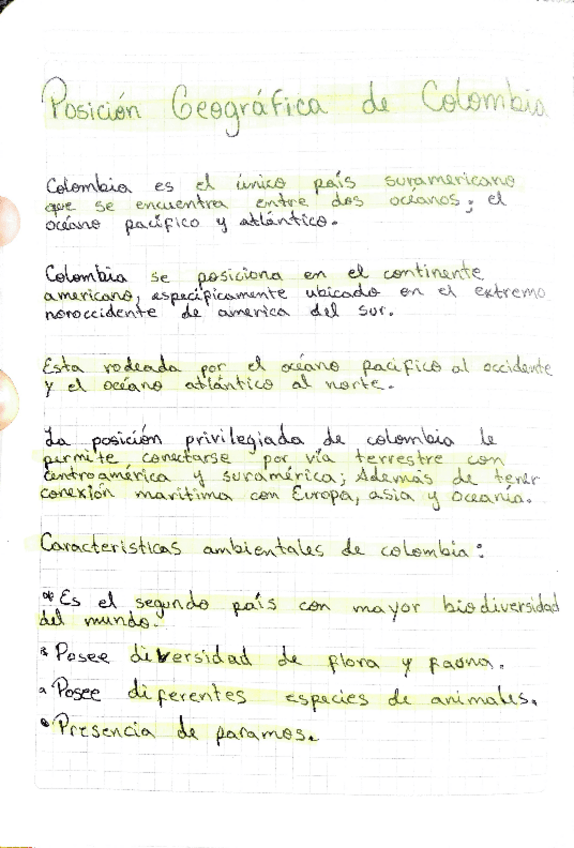 Posición Geográfica de Colombia
Colombia es el único país suramericano
que se encuentra entre dos océanos; el
océano pacífico y atlántico.
Colombia se posiciona en el continente
americano, especificamente ubicado en el extremo
noroccidente de america del sur.
Esta rodeada por el océano pacifico al occidente
y el océano atlántico al norte.
La posición privilegiada de colombia le
permite conectarse por vía terrestre con
Centroamérica y suramérica; Además de tener
conexión maritima con Europa, asia y Oceanía.
Caracteristicas ambientales de colombia:
* Es el segundo país con mayor biodiversidad
del mundo.
* Posee diversidad de flora y fauna.
* Posee diferentes especies de animales.
* Presencia de paramos.